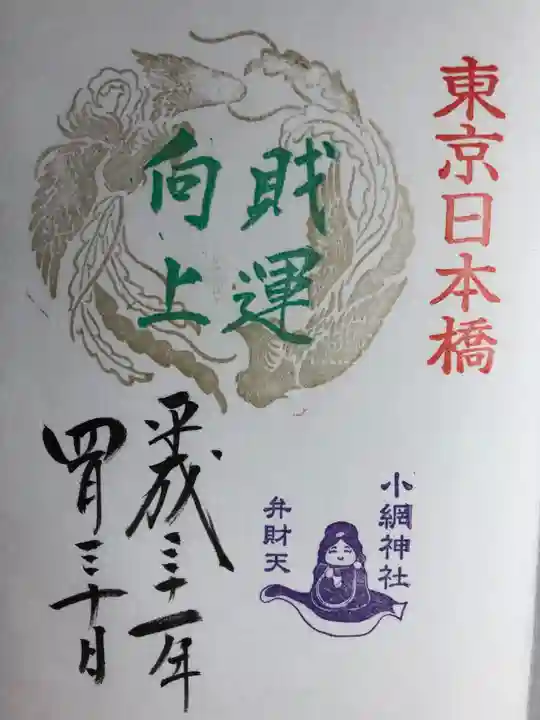 東京日本橋
財運
向上
小網神社
弁財天
平成三十一年
四月三十日